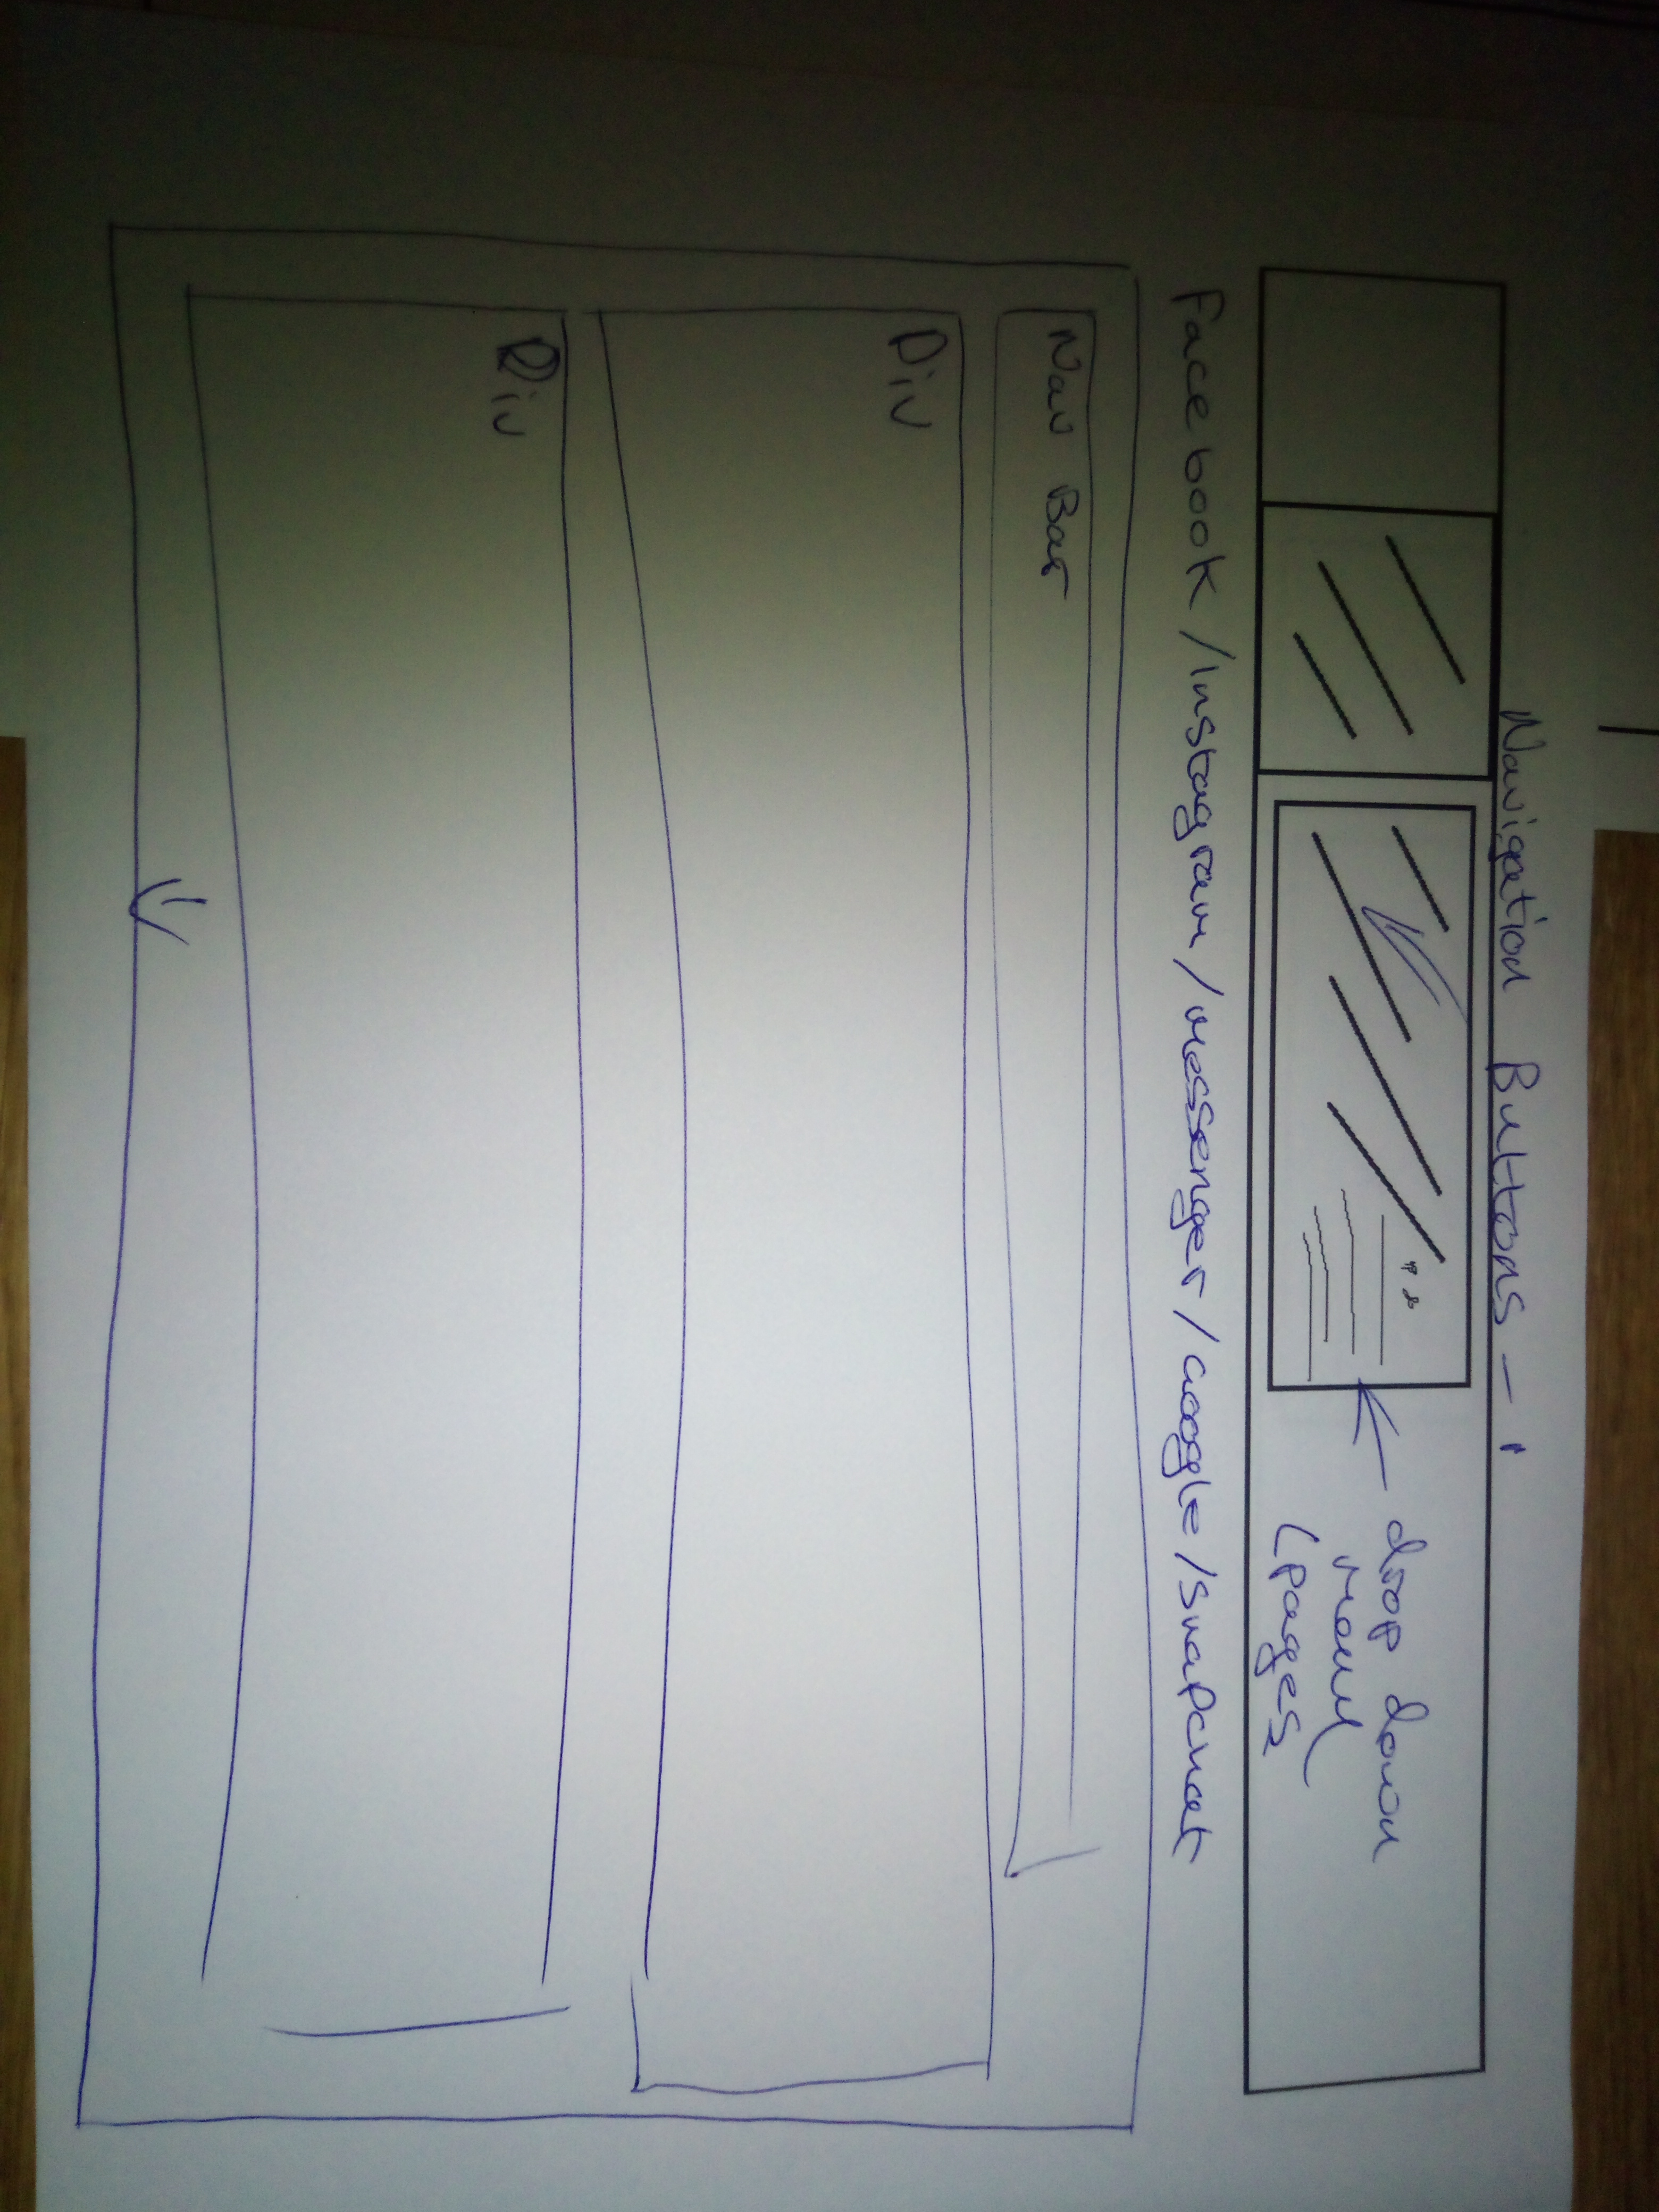 Navigation Buttons - '
drop down
menu
(pages
Facebook / Instagram / Messenger / Google / Snapchat
Nav Bar
Div
Div